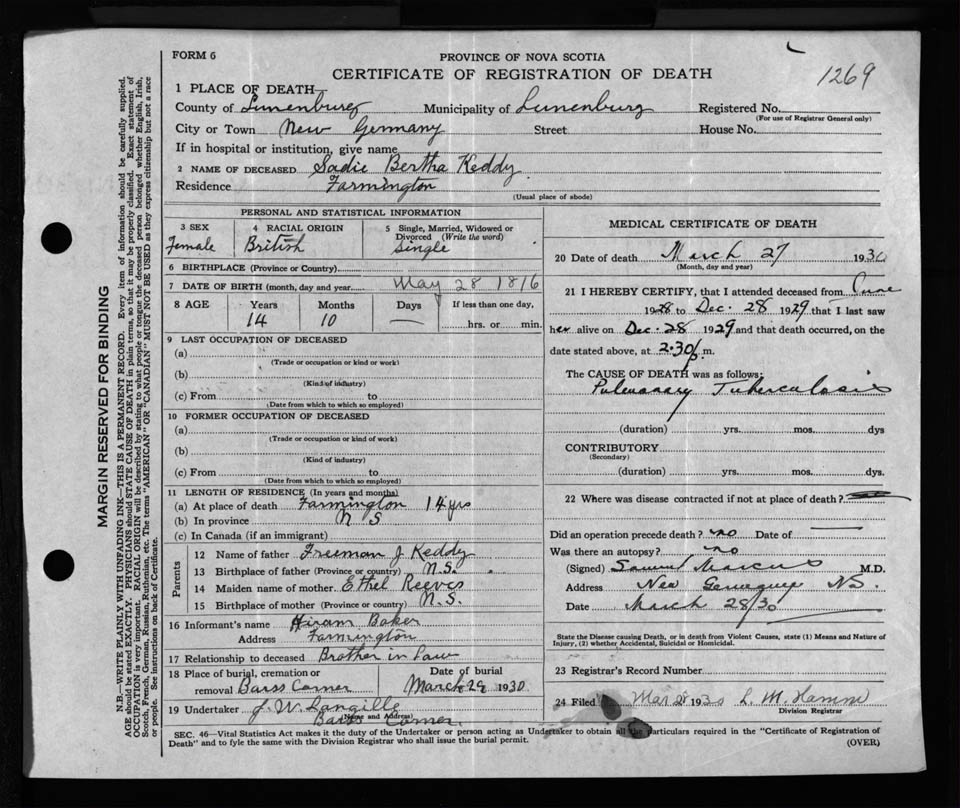 FORM 6
PROVINCE OF NOVA SCOTIA
CERTIFICATE OF REGISTRATION OF DEATH
1269
1 PLACE OF DEATH
County of Lunenburg Municipality of Lunenburg Registered No.
(For use of Registrar General only)
City or Town New Germany Street House No.
If in hospital or institution, give name
2 NAME OF DECEASED Sadie Bertha Keddy
Residence Farmington
(Usual place of abode)
PERSONAL AND STATISTICAL INFORMATION
3 SEX 4 RACIAL ORIGIN 5 Single, Married, Widowed or Divorced (Write the word)
Female British Single
6 BIRTHPLACE (Province or Country)
7 DATE OF BIRTH (month, day and year) May 28 1816
8 AGE Years Months Days If less than one day,
14 10 — hrs. or min.
9 LAST OCCUPATION OF DECEASED
(a)
(Trade or occupation or kind or work)
(b)
(Kind of industry)
(c) From to
(Date from which to which so employed)
10 FORMER OCCUPATION OF DECEASED
(a)
(Trade or occupation or kind of work)
(b)
(Kind of industry)
(c) From to
(Date from which to which so employed)
11 LENGTH OF RESIDENCE (In years and months)
(a) At place of death Farmington 14 yrs
(b) In province N S
(c) In Canada (if an immigrant)
Parents
12 Name of father Freeman J. Keddy
13 Birthplace of father (Province or country) N.S.
14 Maiden name of mother Ethel Reeves
15 Birthplace of mother (Province or country) N.S.
16 Informant's name Hiram Baker
Address Farmington
17 Relationship to deceased Brother in Law
18 Place of burial, cremation or removal Barss Corner Date of burial March 29 1930
19 Undertaker J. W. Langille
(Name and Address)
Barss Corner.
MEDICAL CERTIFICATE OF DEATH
20 Date of death March 27 1930
(Month, day and year)
21 I HEREBY CERTIFY, that I attended deceased from June
1928 to Dec. 28 1929 that I last saw
her alive on Dec. 28 1929 and that death occurred, on the
date stated above, at 2.30 p.m.
The CAUSE OF DEATH was as follows:
Pulmonary Tuberculosis
(duration) yrs. mos. dys
CONTRIBUTORY
(Secondary)
(duration) yrs. mos. dys.
22 Where was disease contracted if not at place of death?
Did an operation precede death? no Date of
Was there an autopsy? no
(Signed) Samuel Marcus M.D.
Address New Germany NS.
Date March 28/30
State the Disease causing Death, or in death from Violent Causes, state (1) Means and Nature of
Injury, (2) whether Accidental, Suicidal or Homicidal.
23 Registrar's Record Number
24 Filed Mar 28 1930
Division Registrar
SEC. 46—Vital Statistics Act makes it the duty of the Undertaker or person acting as Undertaker to obtain all the particulars required in the "Certificate of Registration of
Death" and to fyle the same with the Division Registrar who shall issue the burial permit.
(OVER)
MARGIN RESERVED FOR BINDING
N.B.—WRITE PLAINLY WITH UNFADING INK—THIS IS A PERMANENT RECORD. Every item of information should be carefully supplied.
AGE should be stated EXACTLY. PHYSICIANS should STATE CAUSE OF DEATH in plain terms, so that it may be properly classified. Exact statement of
OCCUPATION is very important. RACIAL ORIGIN will be described by stating to what people or tongue the deceased person belonged whether English, Irish,
Scotch, French, German, Russian, Ruthenian, etc. The terms "AMERICAN" OR "CANADIAN" MUST NOT BE USED as they express citizenship but not a race
or people. See instructions on back of Certificate.